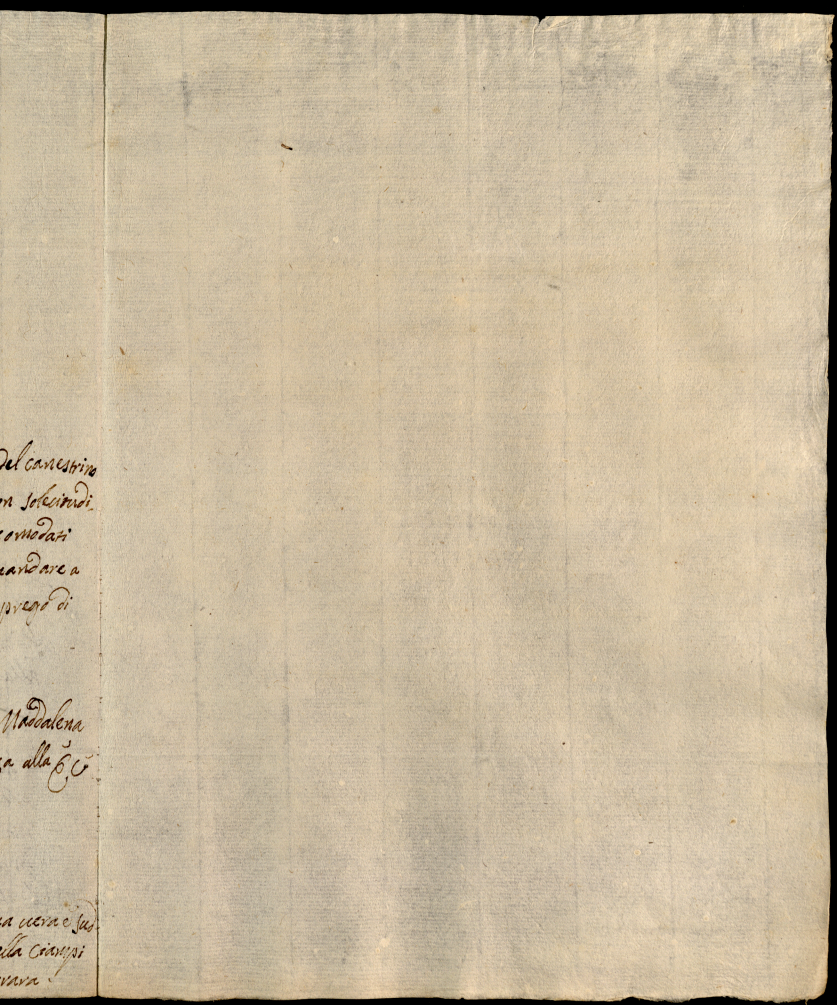 del canestrino
on solecitudi
comodati
eandare a
prego di
Maddalena
a alla
a vera e
ella Ciampi
vara